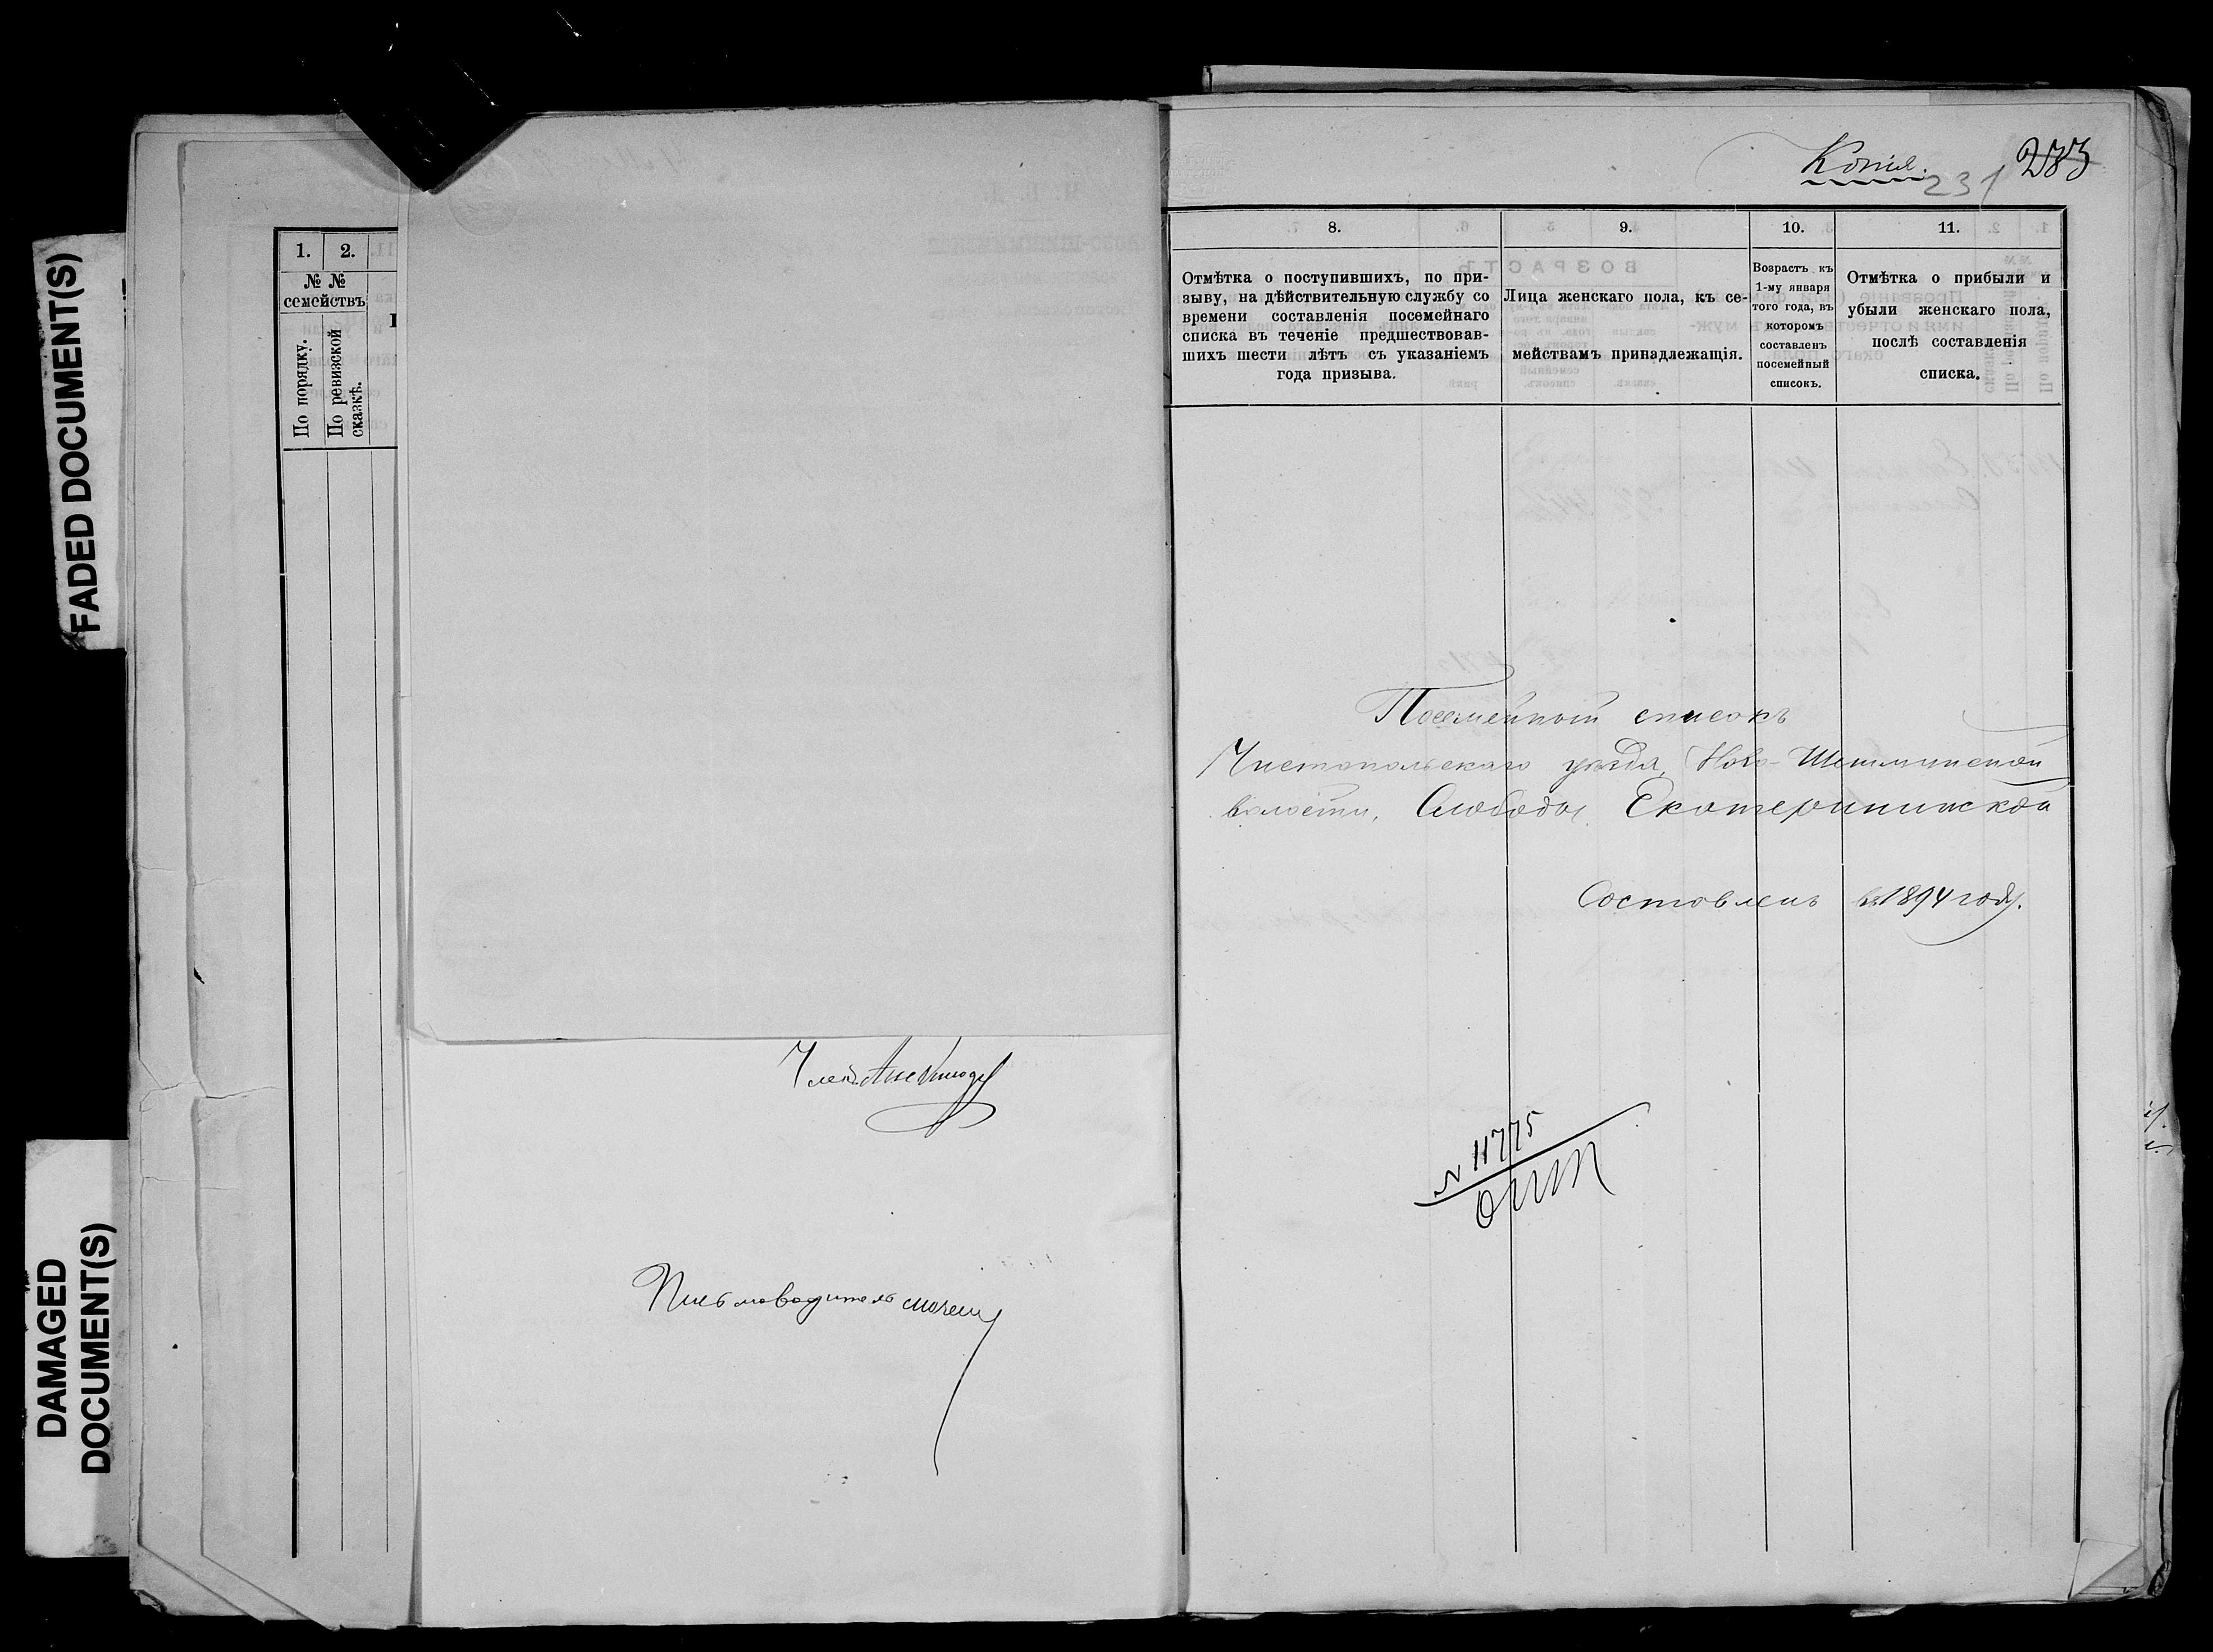 FADED DOCUMENT(S)
DAMAGED
DOCUMENT(S)
1. 2.
№ №
семействъ
По порядку.
По ревизской
сказкѣ.
Членъ
Письмоводитель
Копія.
231 283
8. 9. 10. 11.
Отмѣтка о поступившихъ, по при-
зыву, на дѣйствительную службу со
времени составленія посемейнаго
списка въ теченіе предшествовав-
шихъ шести лѣтъ съ указаніемъ
года призыва.
Лица женскаго пола, къ се-
мействамъ принадлежащія.
Возрастъ къ
1-му января
того года, въ
которомъ
составленъ
посемейный
списокъ.
Отмѣтка о прибыли и
убыли женскаго пола,
послѣ составленія
списка.
Посемейный списокъ
Чистопольскаго уѣзда, Ново-Шешминской
волости, Слободы Екатерининской
Составленъ въ 1894 году.
№ 11775